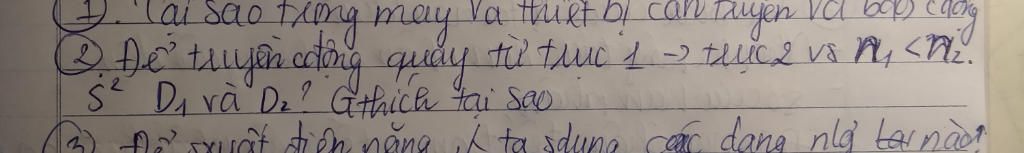 ①. Tại sao trong máy và thiết bị cần truyền và
② Để truyền cđộng quay từ trục 1 → trục 2 vs n₁ < n₂.
S² D₁ và D₂? Gthích tại sao
③ Để sxuất điện năng, ta sdụng các dạng nlg nào?